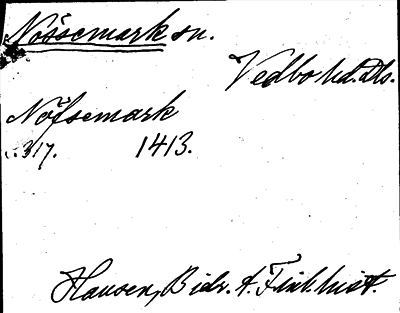 Nössemark sn.
Vedbo hd. Dls.
Nöfsemark
s. 317. 1413.
Hausen, Bidr. t. Finl. hist.